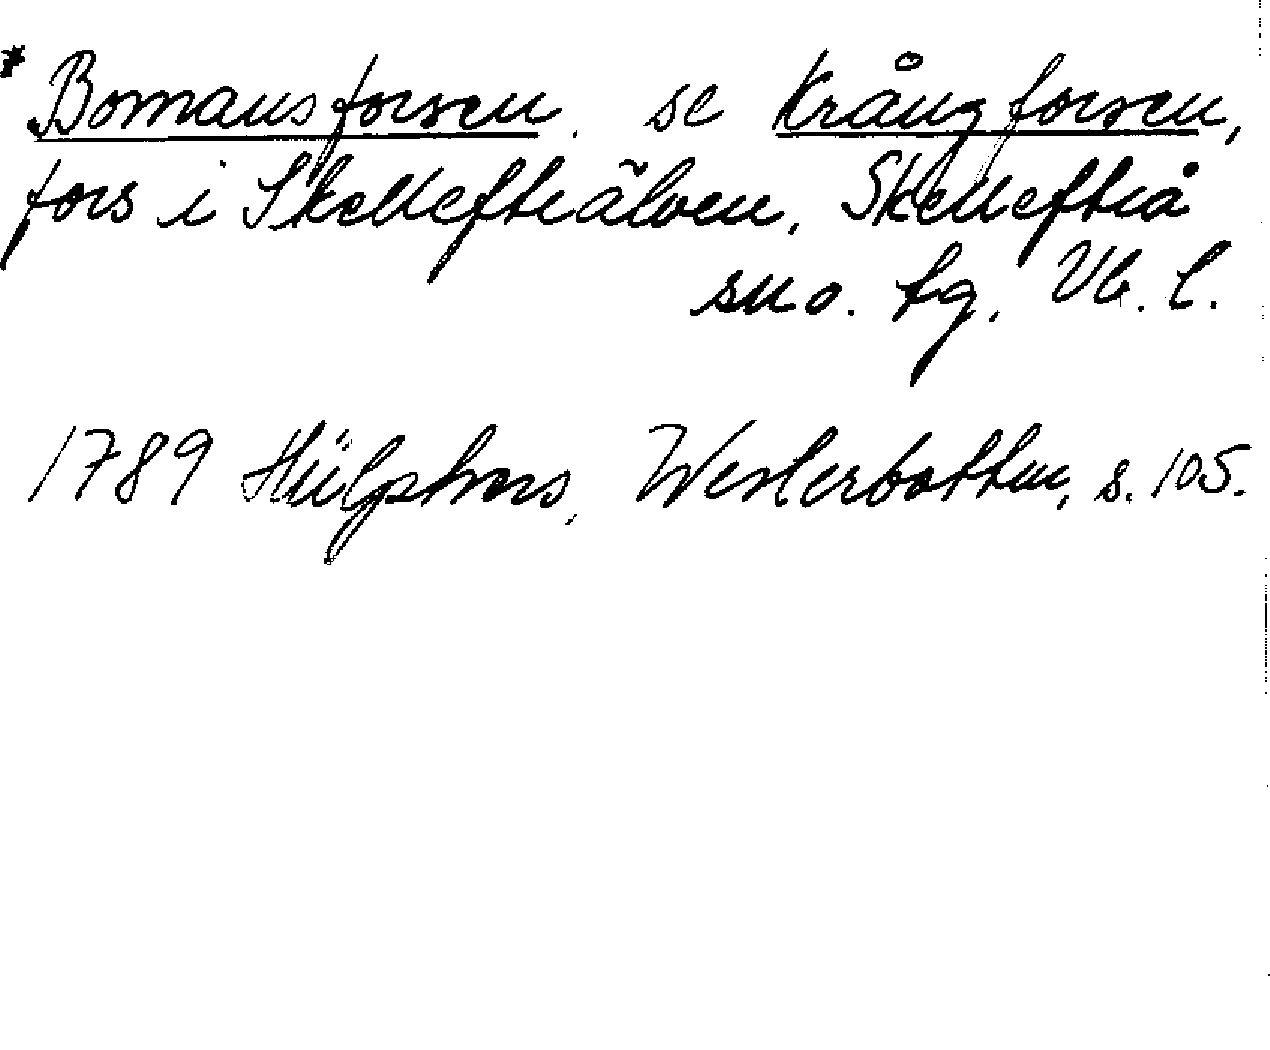 * Bomansforsen. se Krångforsen,
fors i Skellefteälven, Skellefteå
sn o. tg, Vb. l.
1789 Hülphers, Westerbotten, s. 105.